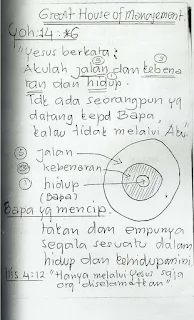 Great House of Management.
Yoh: 14: 6
"Yesus berkata:
Akulah jalan dan kebena
ran dan hidup.
Tdk ada seorangpun yg
datang kepd Bapa,
kalau tidak melalui Aku"
③ jalan
② kebenaran
① hidup
(Bapa)
Bapa yg mencip
takan dan empunya
segala sesuatu dalam
hidup dan kehidupan ini
Kis 4:12 "Hanya melalui Yesus saja
org diselamatkan"